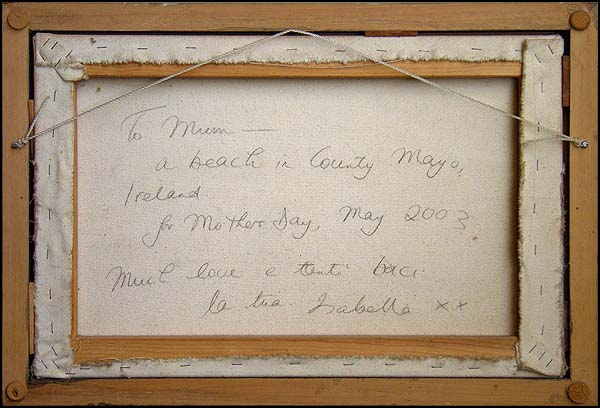 To Mum —
a beach in County Mayo,
Ireland
for Mother Day, May 2003
Much love e tanti baci
la tua Isabella xx